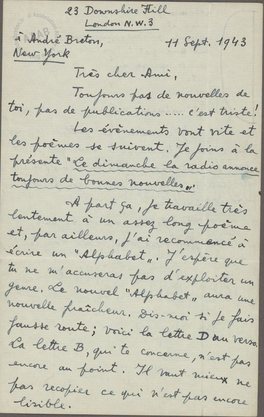 23 Downshire Hill
London N.W.3
à André Breton,
New York
11 Sept. 1943
Très cher Ami,
Toujours pas de nouvelles de
toi, pas de publications..... c'est triste!
Les évènements vont vite et
les poèmes se suivent. Je joins à la
présente "Le dimanche la radio annonce
toujours de bonnes nouvelles".
A part ça, je travaille très
lentement à un assez long poème
et, par ailleurs, j'ai recommencé à
écrire un "Alphabet". J'espère que
tu ne m'accuseras pas d'exploiter un
genre. Le nouvel "Alphabet" aura une
nouvelle fraîcheur. Dis-moi si je fais
fausse route; voici la lettre D au verso.
La lettre B, qui te concerne, n'est pas
encore au point. Il vaut mieux ne
pas recopier ce qui n'est pas encore
lisible.